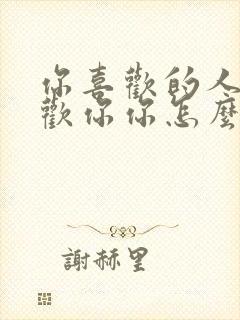 你喜歡的人
歡你你怎麼
謝赫里